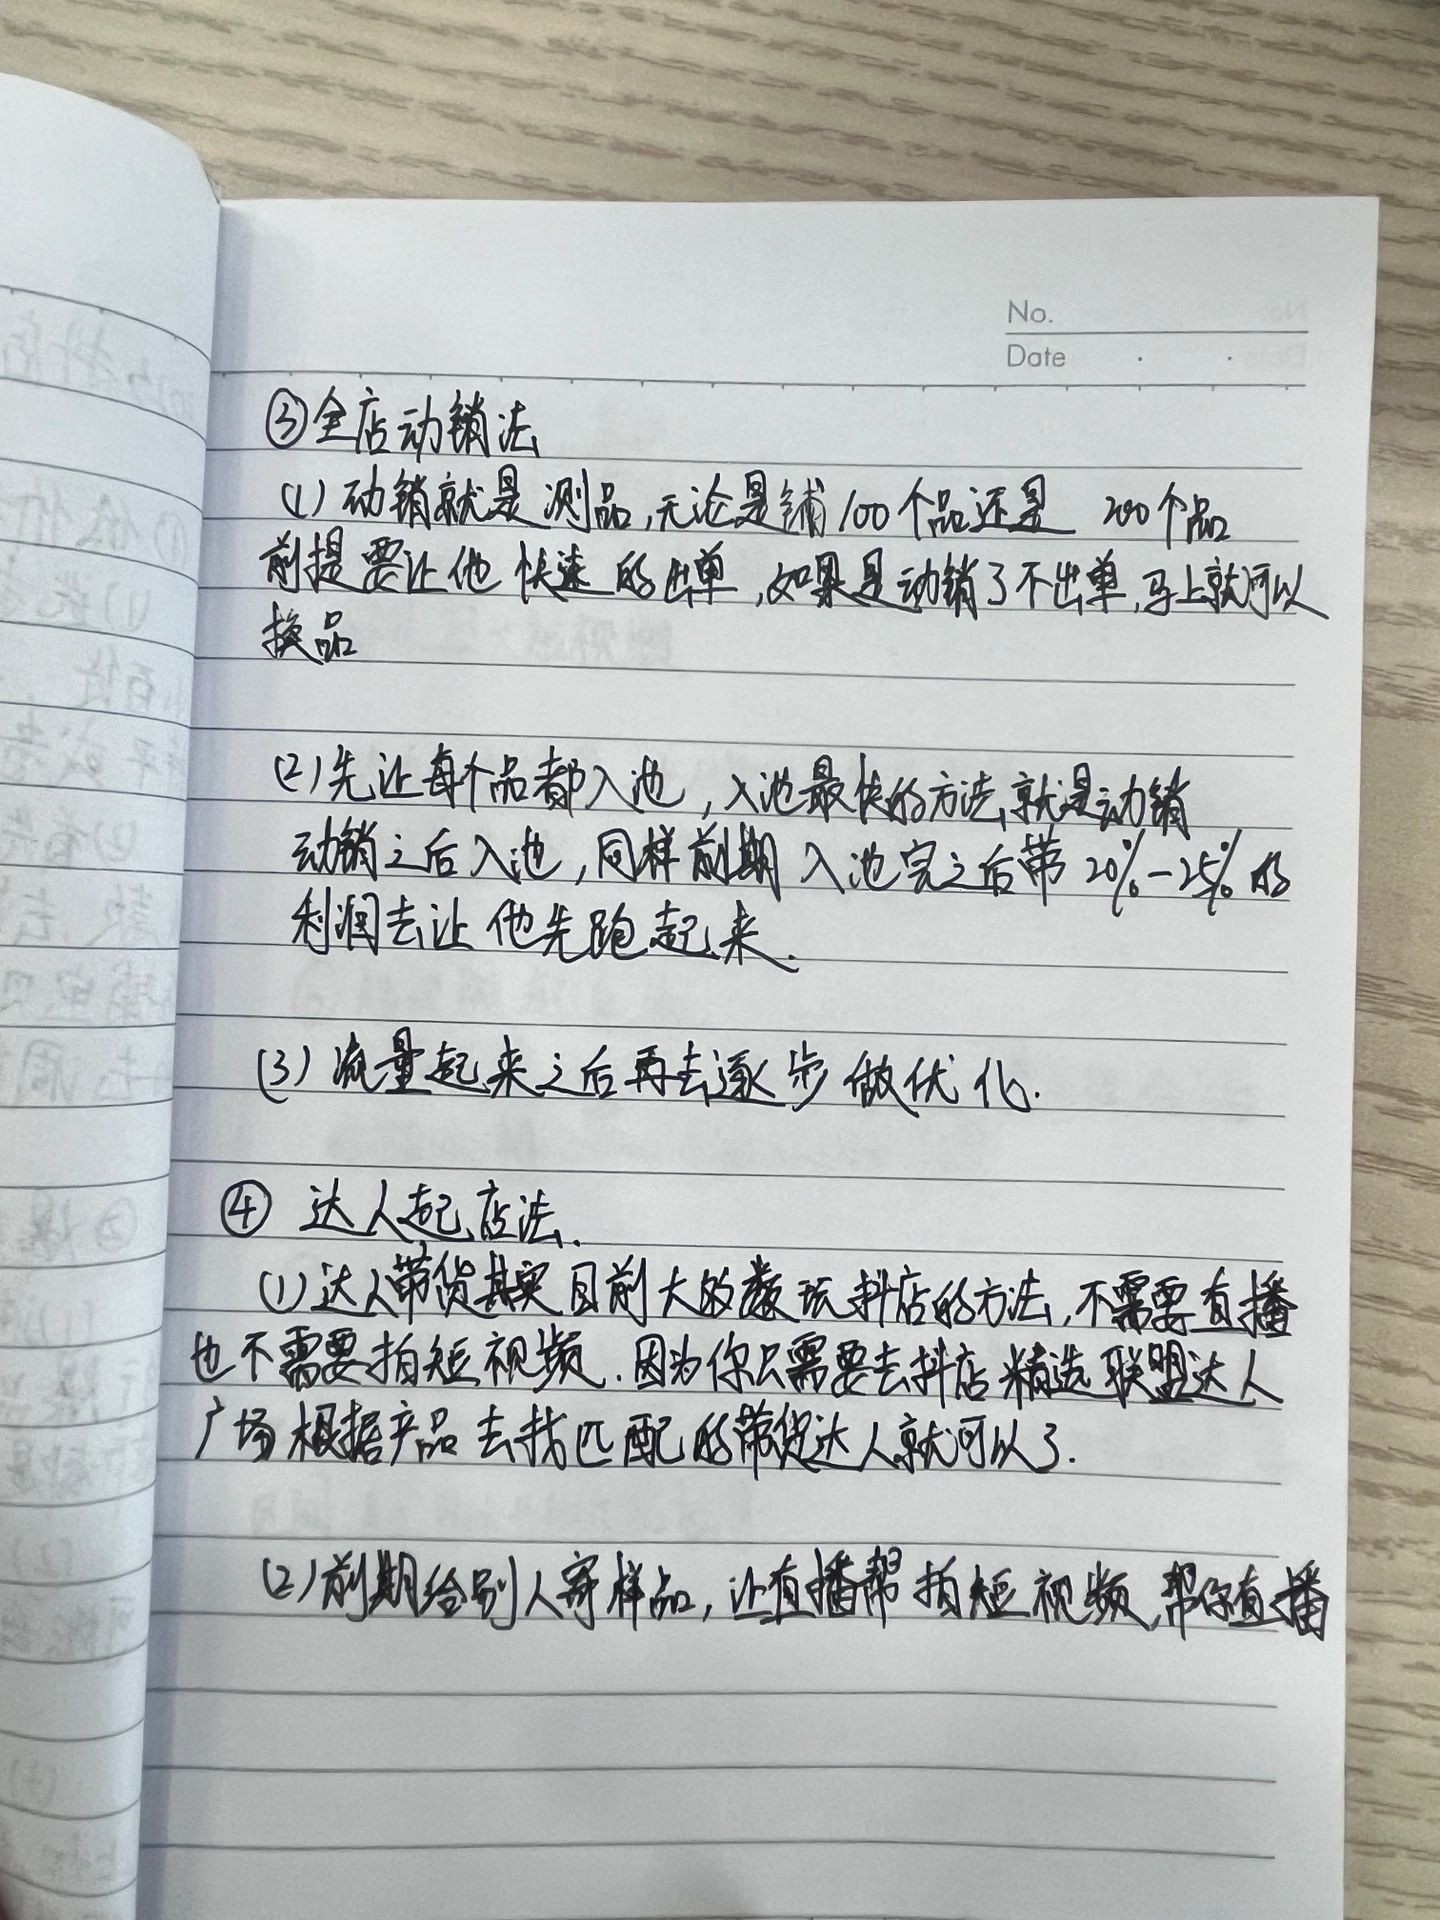 No.
Date
③全店动销法
(1)动销就是测品,无论是铺100个品还是 200个品
前提要让他 快速的出单,如果是动销了不出单,马上就可以
换品
(2)先让每个品都入池,入池最快的方法就是动销
动销之后入池,同样前期 入池完之后带20%-25%的
利润去让 他先跑起来.
(3)流量起来之后再去逐步做优化.
④ 达人起店法.
(1)达人带货其实目前大的数玩抖店的方法,不需要直播
也不需要拍短视频.因为你只需要去抖店精选联盟达人
广场根据产品去找匹配的带货达人就可以了.
(2)前期给别人寄样品,让直播帮拍短视频,帮你直播